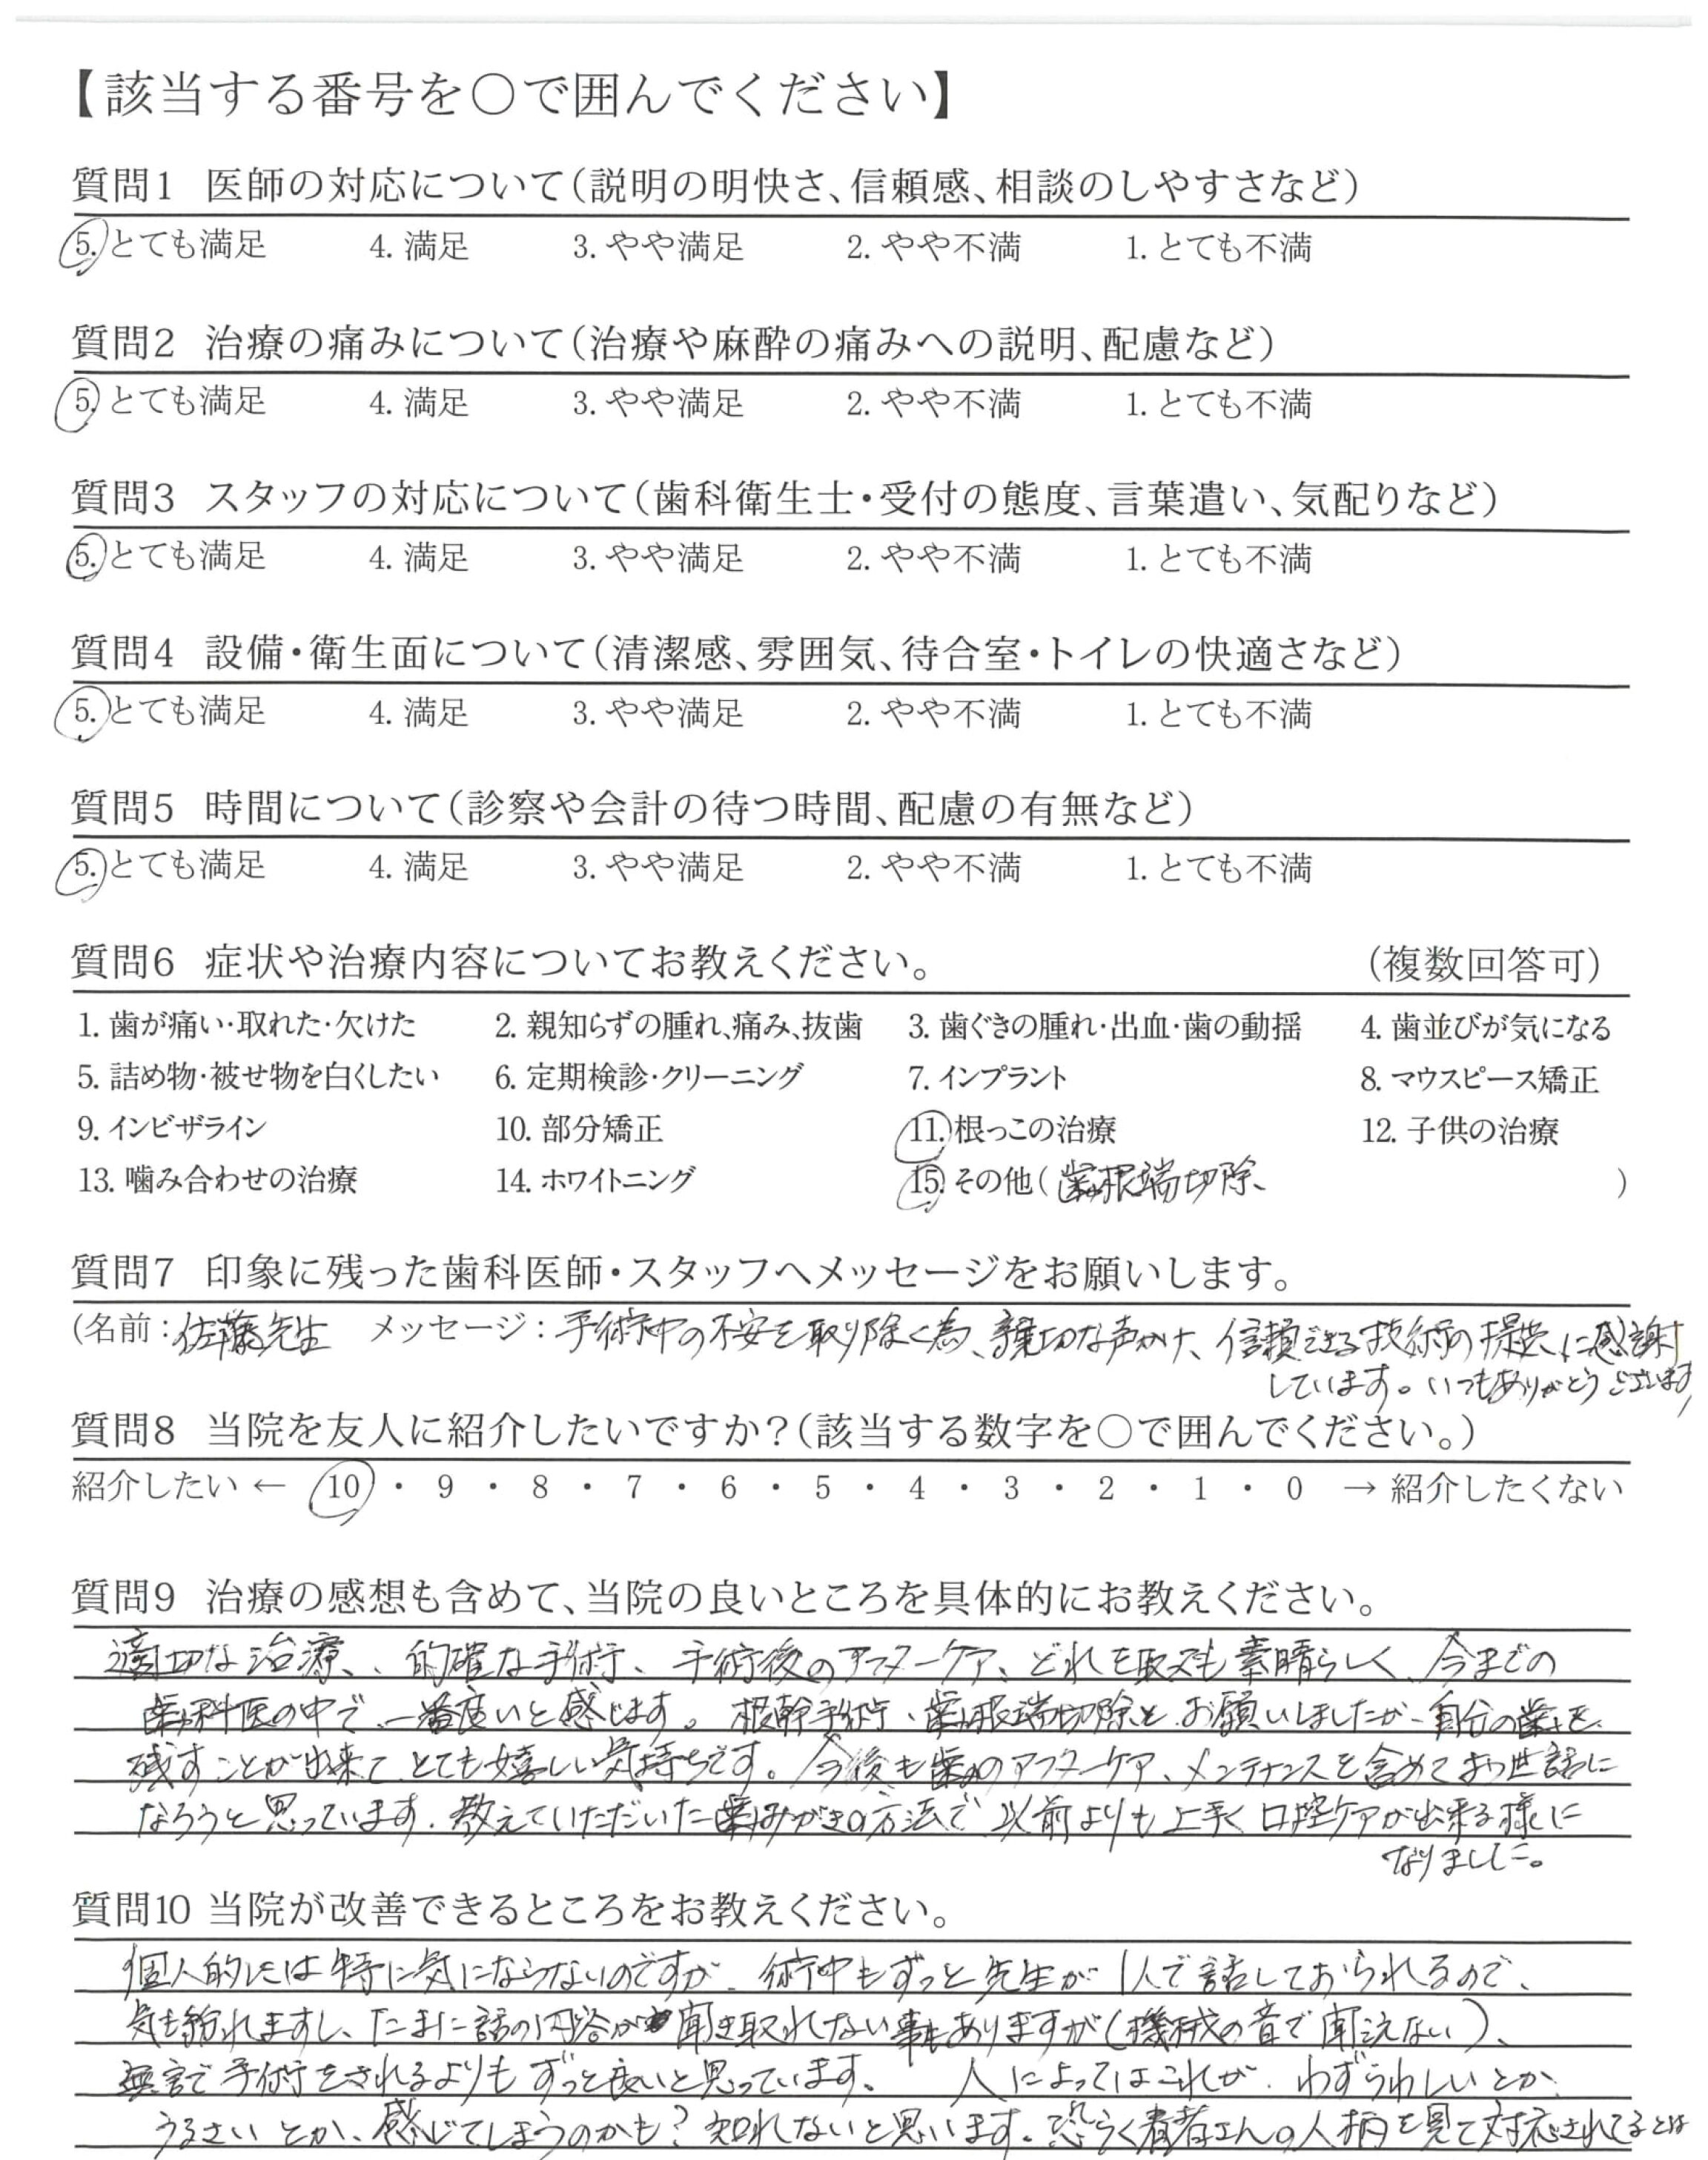 【該当する番号を○で囲んでください】
質問1 医師の対応について(説明の明快さ、信頼感、相談のしやすさなど)
5. とても満足 4. 満足 3. やや満足 2. やや不満 1. とても不満
質問2 治療の痛みについて(治療や麻酔の痛みへの説明、配慮など)
5. とても満足 4. 満足 3. やや満足 2. やや不満 1. とても不満
質問3 スタッフの対応について(歯科衛生士・受付の態度、言葉遣い、気配りなど)
5. とても満足 4. 満足 3. やや満足 2. やや不満 1. とても不満
質問4 設備・衛生面について(清潔感、雰囲気、待合室・トイレの快適さなど)
5. とても満足 4. 満足 3. やや満足 2. やや不満 1. とても不満
質問5 時間について(診察や会計の待つ時間、配慮の有無など)
5. とても満足 4. 満足 3. やや満足 2. やや不満 1. とても不満
質問6 症状や治療内容についてお教えください。 (複数回答可)
1. 歯が痛い・取れた・欠けた 2. 親知らずの腫れ、痛み、抜歯 3. 歯ぐきの腫れ・出血・歯の動揺 4. 歯並びが気になる
5. 詰め物・被せ物を白くしたい 6. 定期検診・クリーニング 7. インプラント 8. マウスピース矯正
9. インビザライン 10. 部分矯正 11. 根っこの治療 12. 子供の治療
13. 噛み合わせの治療 14. ホワイトニング 15. その他(歯根端切除 )
質問7 印象に残った歯科医師・スタッフへメッセージをお願いします。
(名前:佐藤先生 メッセージ:手術中の不安を取り除く為、親切な声かけ、信頼できる技術の提供に感謝
しています。いつもありがとうございます
質問8 当院を友人に紹介したいですか?(該当する数字を○で囲んでください。)
紹介したい ← 10 ・ 9 ・ 8 ・ 7 ・ 6 ・ 5 ・ 4 ・ 3 ・ 2 ・ 1 ・ 0 → 紹介したくない
質問9 治療の感想も含めて、当院の良いところを具体的にお教えください。
適切な治療、的確な手術、手術後のアフターケア、どれを取っても素晴らしく、今までの
歯科医の中で、一番良いと感じます。根幹手術、歯根端切除と、お願いしましたが、自分の歯を
残すことが出来て、とても嬉しい気持ちです。今後も歯のアフターケア、メンテナンスを含めてお世話に
なろうと思っています。教えていただいた歯みがきの方法で、以前よりも上手く口腔ケアが出来る様に
なりました。
質問10 当院が改善できるところをお教えください。
個人的には特に気にならないのですが、術中もずっと先生が1人で話しておられるので、
気も紛れますし、たまに話の内容が聞き取れない事もありますが(機械の音で聞えない)、
無言で手術をされるよりもずっと良いと思っています。 人によってはこれが、わずらわしいとか、
うるさいとか、感じてしまうのかも?知れないと思います。恐らく患者さんの人柄を見て対応されてるとは